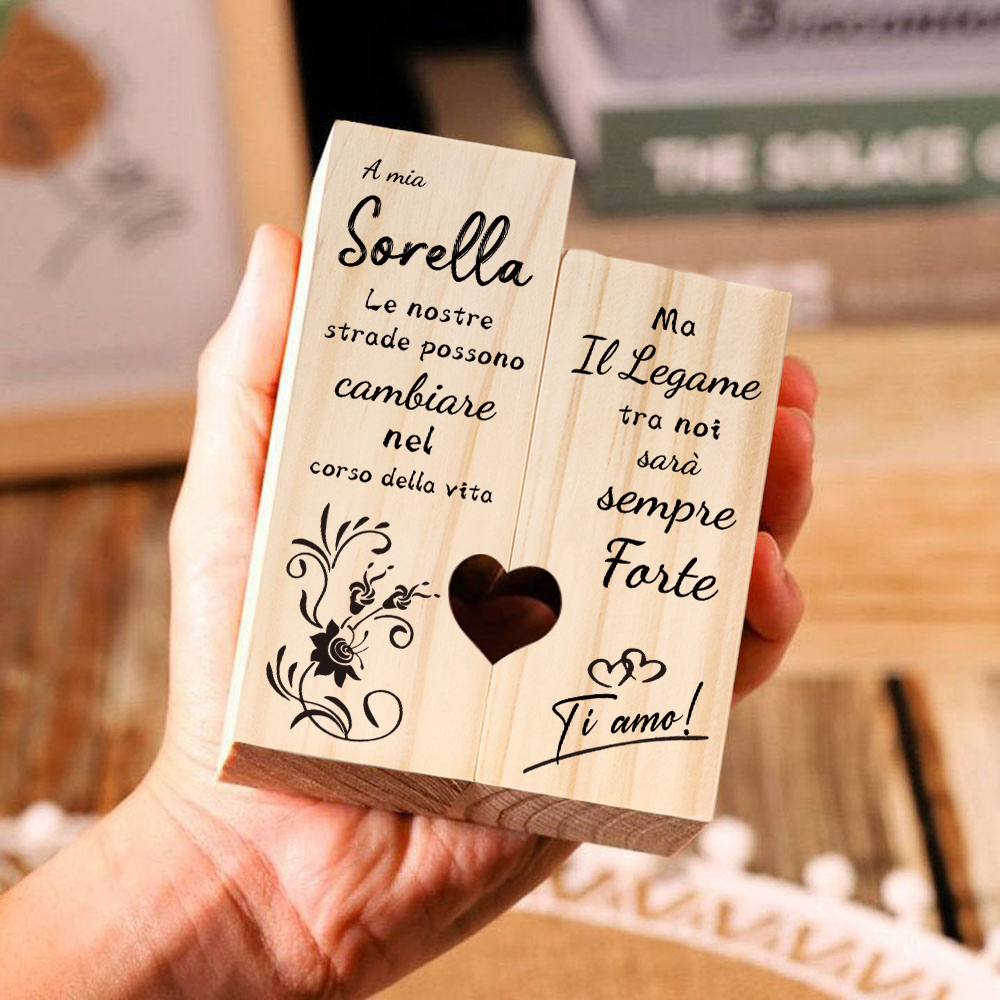 A mia
Sorella
Le nostre
strade possono
cambiare
nel
corso della vita
Ma
Il Legame
tra noi
sarà
sempre
Forte
Ti amo!
THE SOLACE